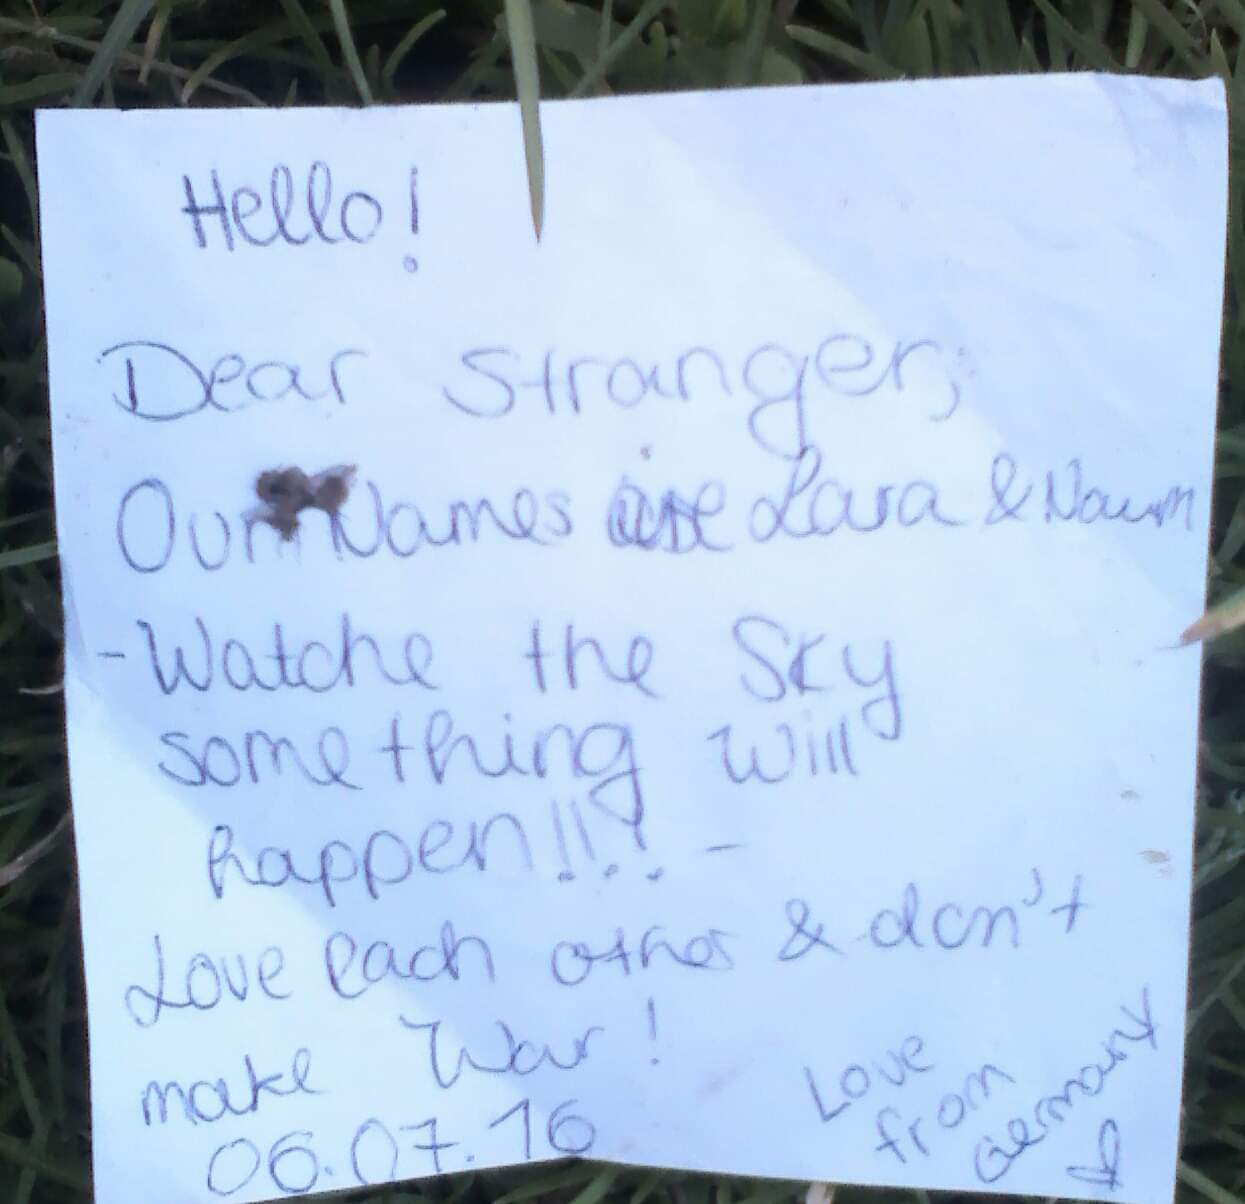 Hello!
Dear Stranger,
Our Names are Lara & Naum
-Watche the Sky
something will
happen!!! -
Love each other & don't
make War!
06.07.16
Love
from
Germany